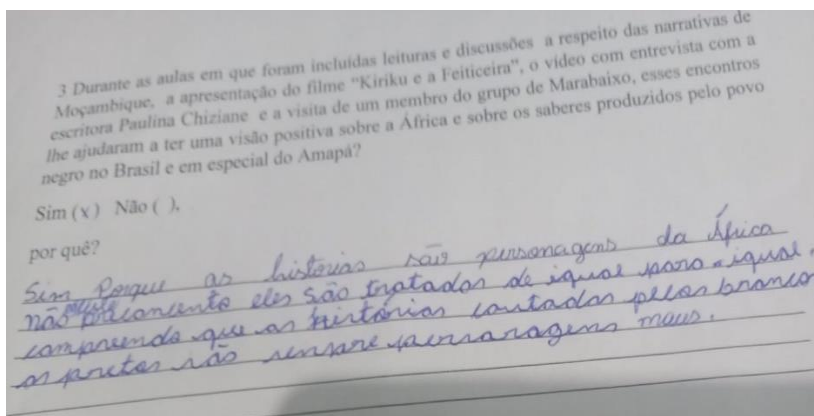 3 Durante as aulas em que foram incluídas leituras e discussões a respeito das narrativas de
Moçambique, a apresentação do filme "Kiriku e a Feiticeira", o vídeo com entrevista com a
escritora Paulina Chiziane e a visita de um membro do grupo de Marabaixo, esses encontros
lhe ajudaram a ter uma visão positiva sobre a África e sobre os saberes produzidos pelo povo
negro no Brasil e em especial do Amapá?
Sim (x) Não ( ),
por quê?
Sim Porque as histórias são personagens da África
não preconcento eles são tratados de igual para igual.
compreendo que as histórias contadas pelos branco
os pretos são sempre personagens maus.